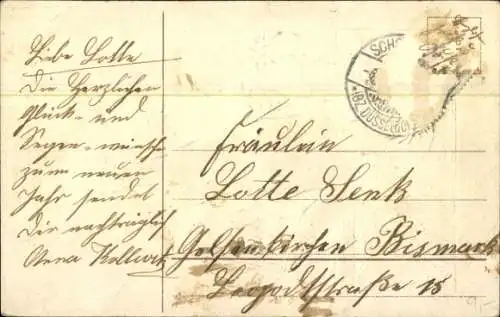 Liebe Lotte
Die Herzlichen
Glück- und
Segen-wünsche
zum neuen
Jahr sendet
Dir nachträglich
Anna Kollwitz
SCH
(BZ. DÜSSELDORF)
Fräulein
Lotte Senk
Gelsenkirchen Bismark
Leopoldstraße 15
9.-